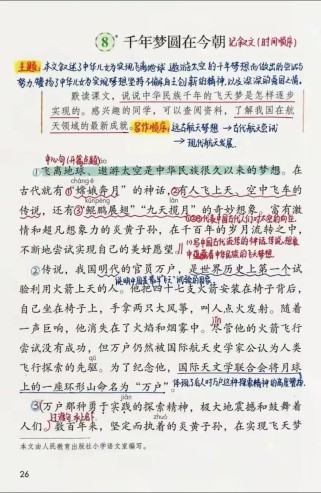 8 千年梦圆在今朝 记叙文(时间顺序)
主题:本文叙述了中华儿女为实现飞离地球、遨游太空的千年梦想而做出的尝试与
努力,赞扬了中华儿女为实现梦想坚持不懈、自主创新的精神,以及深深的爱国之情。
默读课文,说说中华民族千年的飞天梦是怎样逐步
实现的。感兴趣的同学,可以查阅资料,了解我国在航
天领域的最新成就。写作顺序:远古航天梦想→古代航天尝试
→现代航天发展。
中心句(开篇点题)
①飞离地球、遨游太空是中华民族很久以来的梦想。在
cháng é
古代就有①“嫦娥奔月”的神话,②有人飞上天、空中飞车的
kūn péng lǎn
传说,还有③“鲲鹏展翅”“九天揽月”的奇妙想象。富有激
情和超凡想象力的炎黄子孙,在千百年的岁月流转之中,
不断地尝试实现自己的美好愿望。
②传说,我国明代的官员万户,是世界历史上第一个试
验利用火箭上天的人。他把四十七支火箭安装在椅子背后,
自己坐在椅子上,手拿两只大风筝,叫人点火发射。随着
一声巨响,他消失在了火焰和烟雾中。尽管他的火箭飞行
尝试没有成功,但万户仍然被国际航天史学家公认为人类
飞行探索的先驱。为了纪念他,国际天文学联合会将月球
上的一座环形山命名为“万户”。
jiàn
③万户那种勇于实践的探索精神,极大地震撼和鼓舞着
人们。数百年来,坚定而执着的炎黄子孙,在实现飞天梦
本文由人民教育出版社小学语文室编写。
26